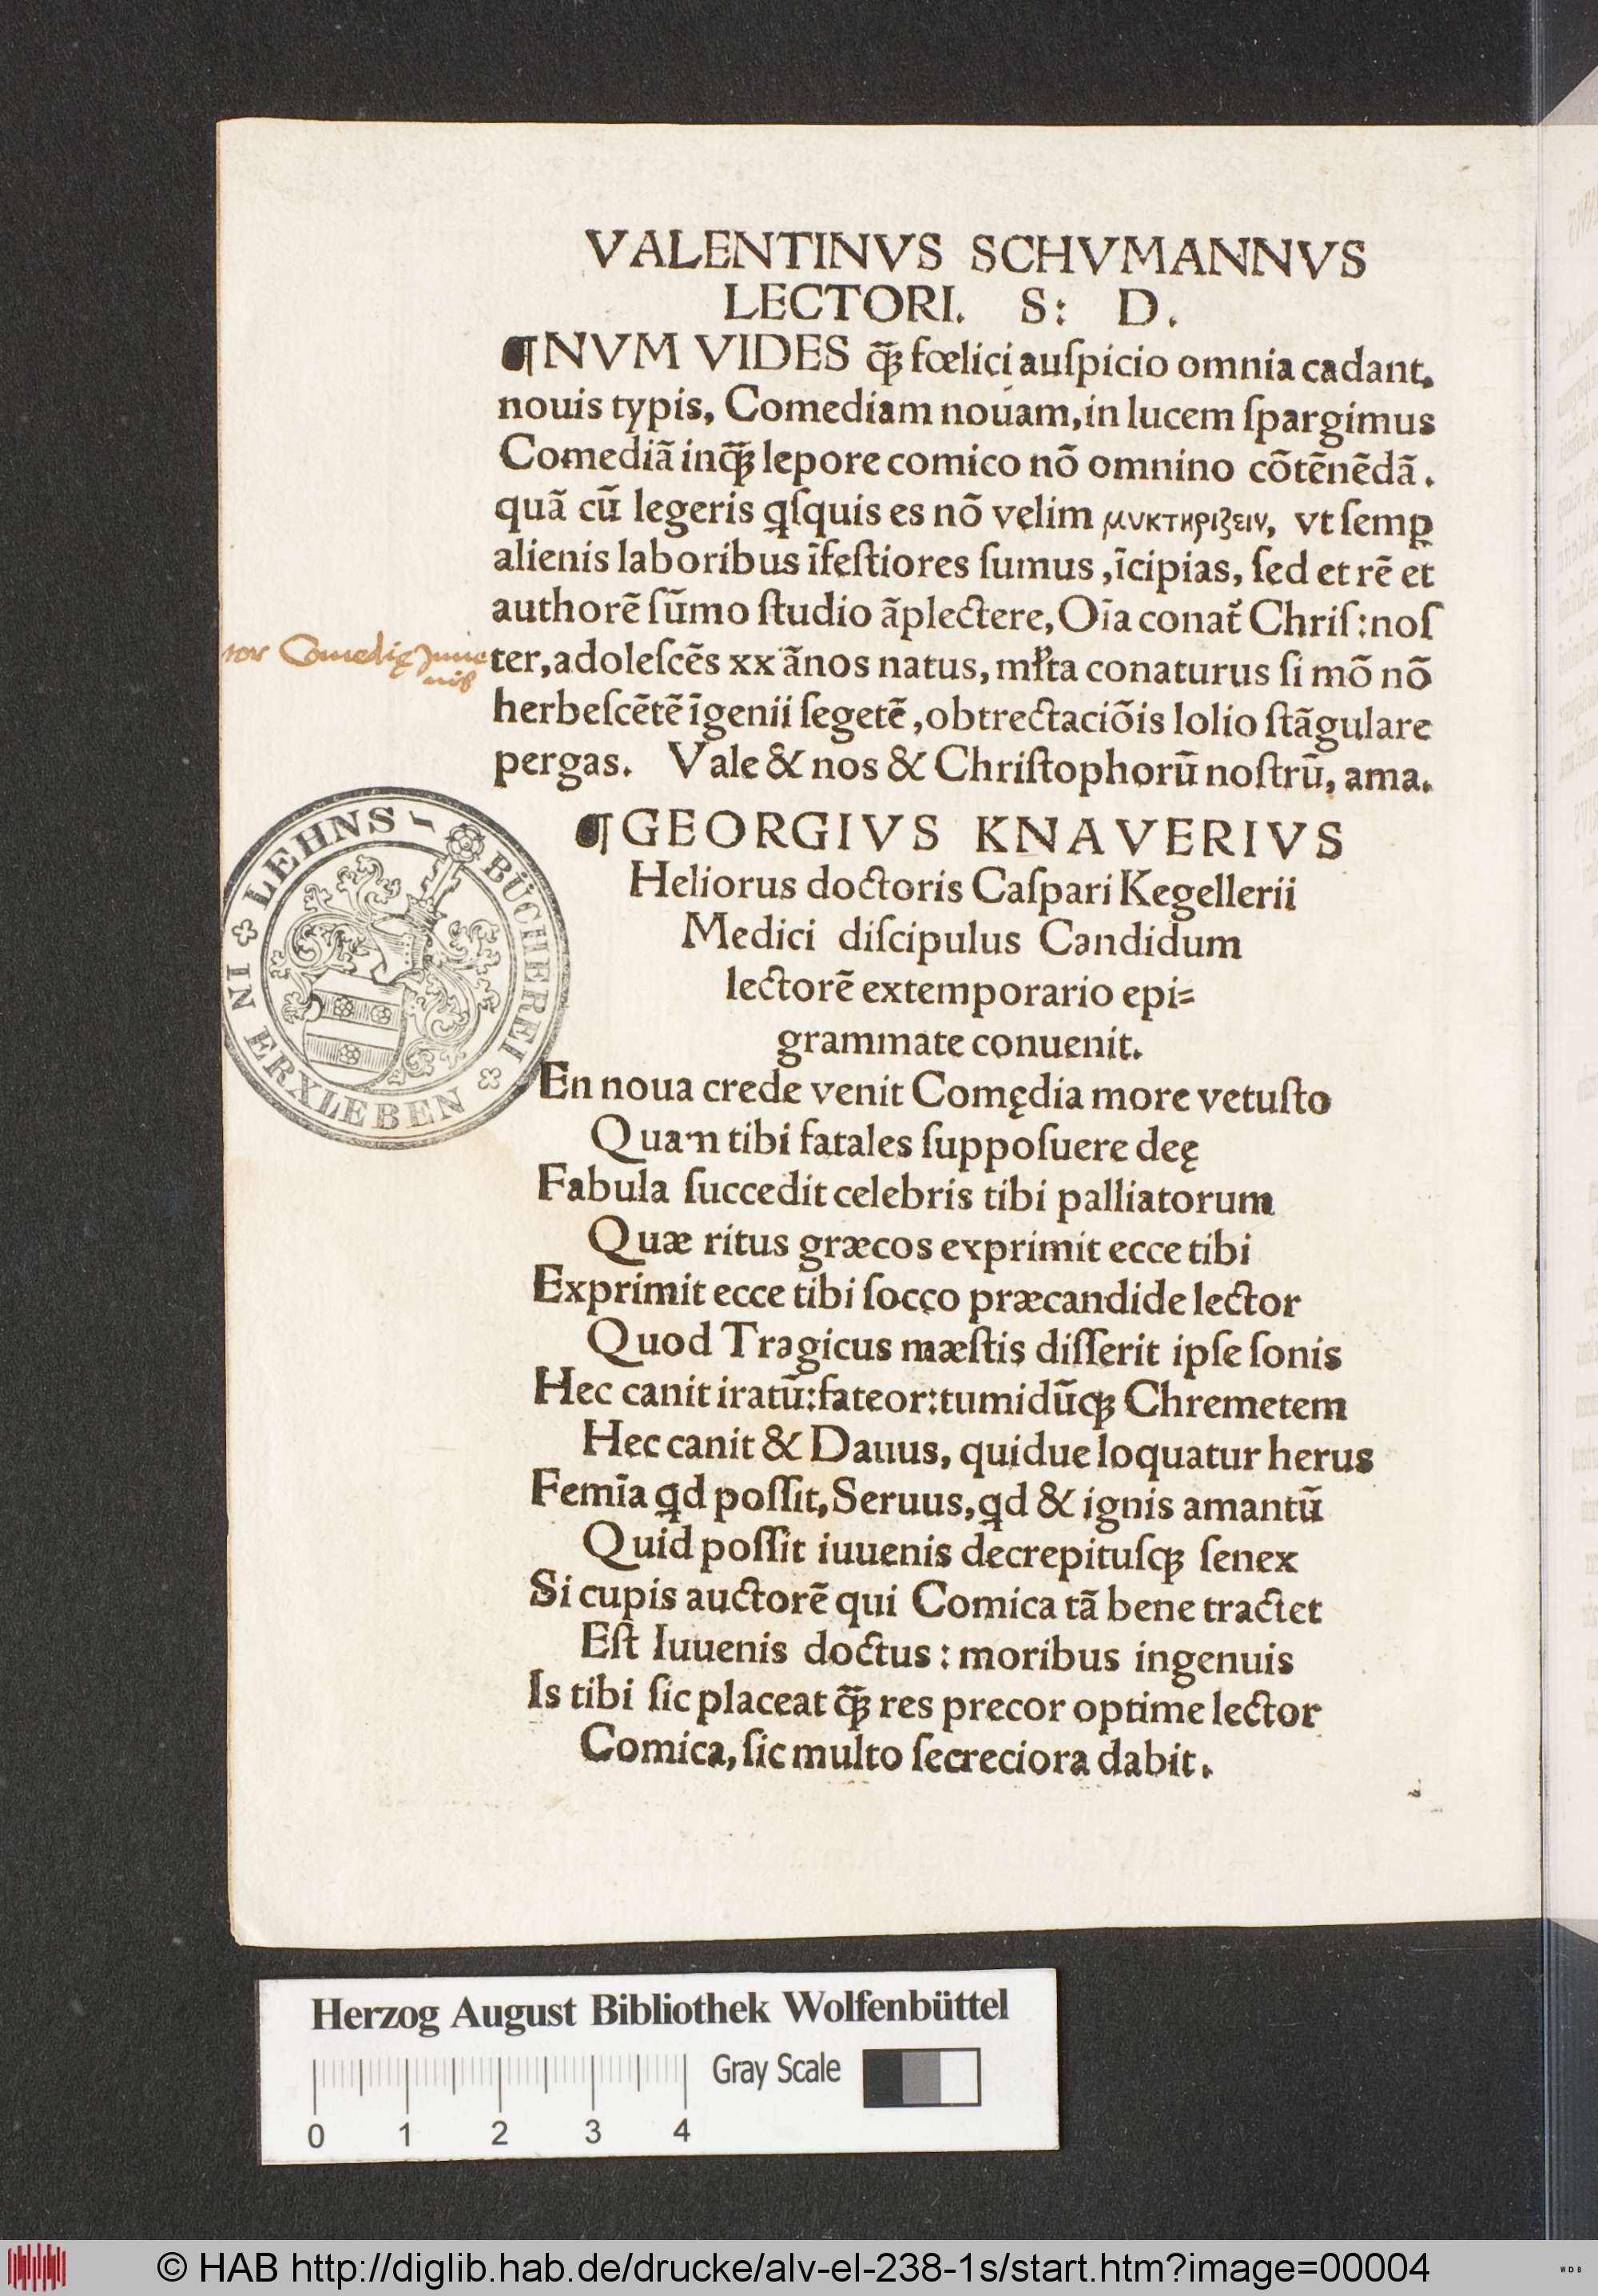 VALENTINVS SCHVMANNVS
LECTORI. S: D.
¶NVM VIDES q̃ꝫ fœlici auſpicio omnia cadant.
nouis typis, Comediam nouam, in lucem ſpargimus
Comediã inq̃ꝫ lepore comico nõ omnino cõtẽnẽdã.
quã cũ legeris qſquis es nõ velim μυκτηριζειν, vt ſemꝑ
alienis laboribus ĩfeſtiores ſumus, ĩcipias, ſed et rẽ et
authorẽ ſũmo ſtudio ãplectere, Oĩa conat̃ Chriſ: noſ
tor Comedię Juue
nis
ter, adoleſcẽs xx ãnos natus, mľta conaturus ſi mõ nõ
herbeſcẽtẽ ĩgenii ſegetẽ, obtrectaciõis lolio ſtãgulare
pergas. Vale & nos & Chriſtophorũ noſtrũ, ama.
¶GEORGIVS KNAVERIVS
Heliorus doctoris Caſpari Kegellerii
Medici diſcipulus Candidum
lectorẽ extemporario epi=
grammate conuenit.
En noua crede venit Comędia more vetuſto
Quam tibi fatales ſuppoſuere deę
Fabula ſuccedit celebris tibi palliatorum
Quæ ritus græcos exprimit ecce tibi
Exprimit ecce tibi ſocco præcandide lector
Quod Tragicus mæſtis diſſerit ipſe ſonis
Hec canit iratũ: fateor: tumidũqꝫ Chremetem
Hec canit & Dauus, quidue loquatur herus
Femĩa qd poſſit, Seruus, qd & ignis amantũ
Quid poſſit iuuenis decrepituſqꝫ ſenex
Si cupis auctorẽ qui Comica tã bene tractet
Eſt Iuuenis doctus: moribus ingenuis
Is tibi ſic placeat q̃ꝫ res precor optime lector
Comica, ſic multo ſecreciora dabit.
LEHNS - BÜCHEREI
IN ERXLEBEN
Herzog August Bibliothek Wolfenbüttel
Gray Scale
0 1 2 3 4
© HAB http://diglib.hab.de/drucke/alv-el-238-1s/start.htm?image=00004
WDB